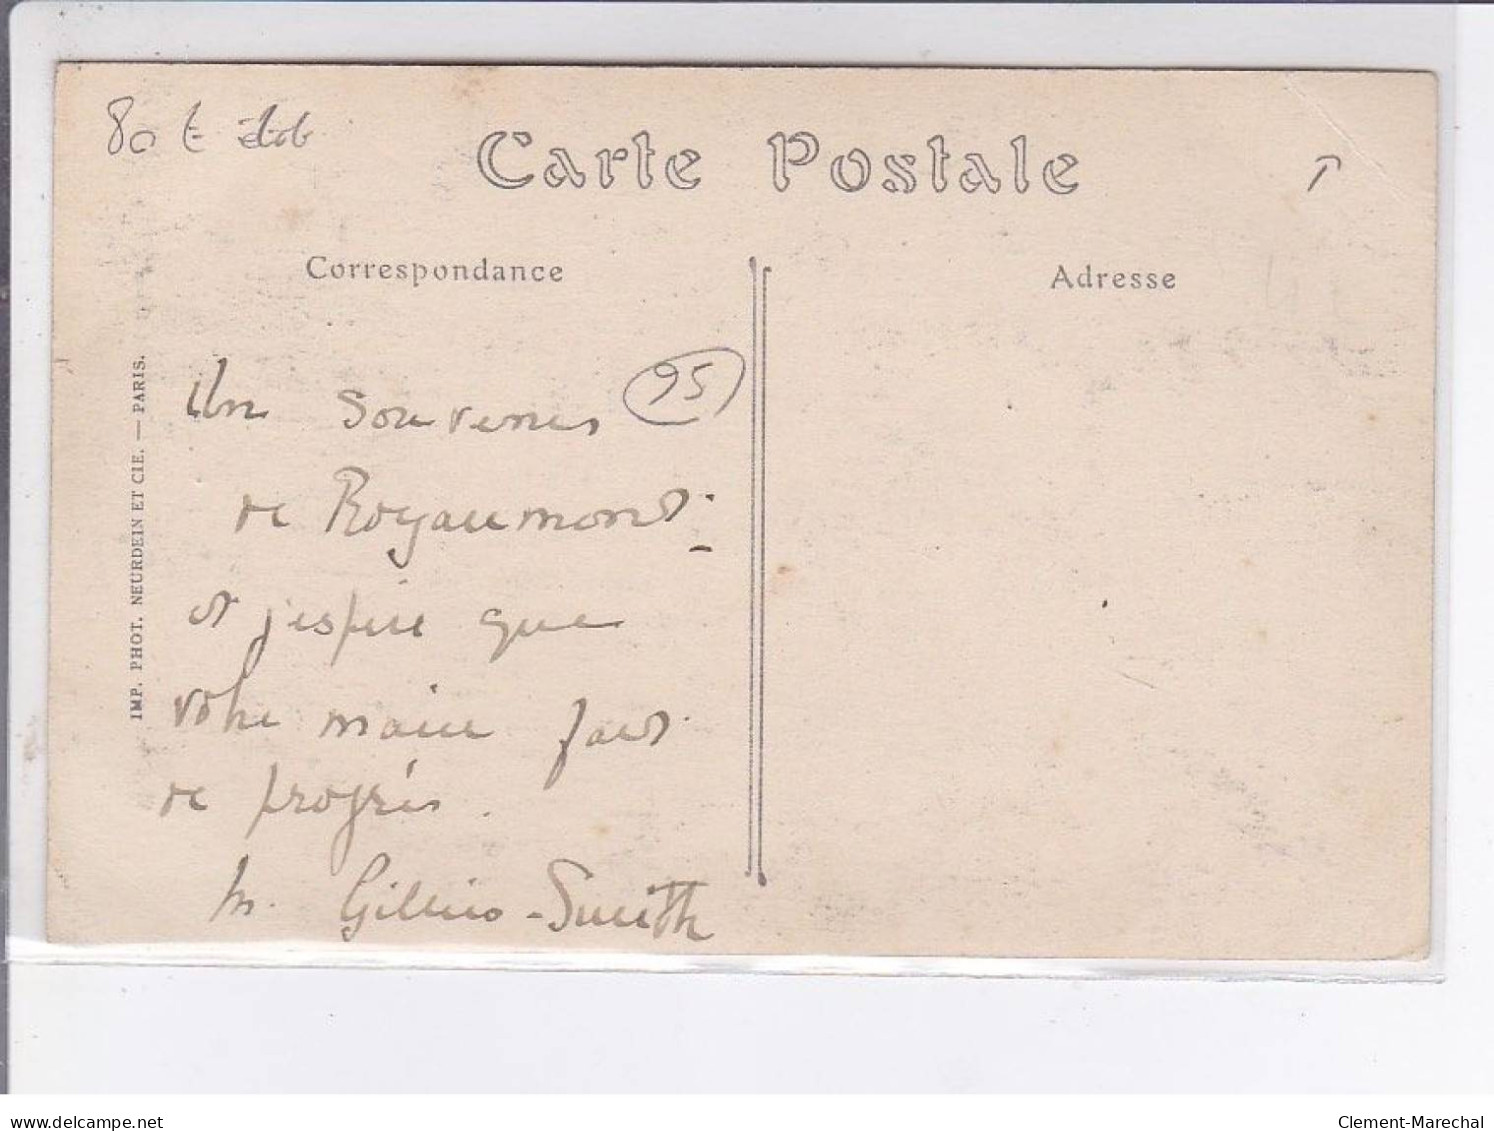 80 €
Carte Postale
Correspondance
Adresse
95
Un souvenir
de Royaumont
et j'espère que
votre main fait
de progrès.
M. Gillies-Smith
IMP. PHOT. NEURDEIN ET CIE. — PARIS.
www.delcampe.net
Clement-Marechal